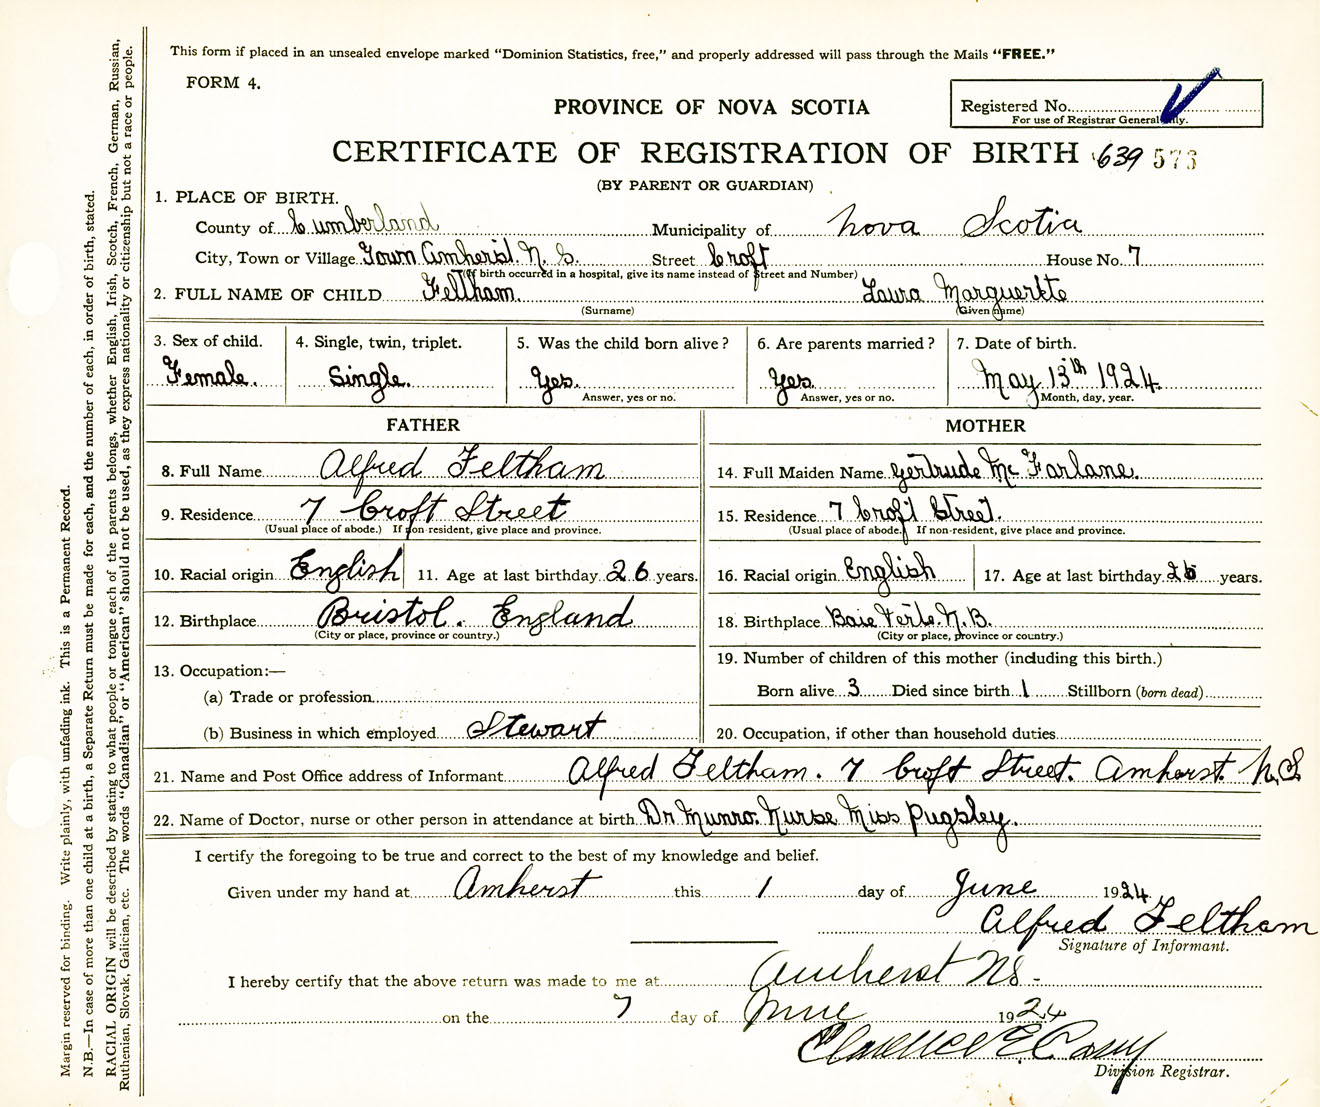 This form if placed in an unsealed envelope marked “Dominion Statistics, free,” and properly addressed will pass through the Mails “FREE.”
FORM 4.
PROVINCE OF NOVA SCOTIA
Registered No.
For use of Registrar General
CERTIFICATE OF REGISTRATION OF BIRTH 639 573
(BY PARENT OR GUARDIAN)
1. PLACE OF BIRTH.
County of Cumberland Municipality of Nova Scotia
City, Town or Village Town Amherst. N. S. Street Croft House No. 7
(If birth occurred in a hospital, give its name instead of Street and Number)
2. FULL NAME OF CHILD Feltham. Laura Marguerite
(Surname) (Given name)
3. Sex of child. 4. Single, twin, triplet. 5. Was the child born alive? 6. Are parents married? 7. Date of birth.
Female. Single. Yes. Yes. May 13th 1924.
Answer, yes or no. Answer, yes or no. Month, day, year.
FATHER MOTHER
8. Full Name Alfred Feltham 14. Full Maiden Name Gertrude Mc Farlane.
9. Residence 7 Croft Street 15. Residence 7 Croft Street.
(Usual place of abode.) If non-resident, give place and province. (Usual place of abode.) If non-resident, give place and province.
10. Racial origin English 11. Age at last birthday 26 years. 16. Racial origin English 17. Age at last birthday years.
12. Birthplace Bristol. England 18. Birthplace Baie Verte. N. B.
(City or place, province or country.) (City or place, province or country.)
13. Occupation:— 19. Number of children of this mother (including this birth.)
(a) Trade or profession Born alive 3 Died since birth 1 Stillborn (born dead)
(b) Business in which employed Stewart 20. Occupation, if other than household duties
21. Name and Post Office address of Informant Alfred Feltham. 7 Croft Street. Amherst. N.S
22. Name of Doctor, nurse or other person in attendance at birth Dr Munro. Nurse Miss Pugsley.
I certify the foregoing to be true and correct to the best of my knowledge and belief.
Given under my hand at Amherst this 1 day of June 1924
Alfred Feltham
Signature of Informant.
I hereby certify that the above return was made to me at Amherst NS-
on the 7 day of June 1924
Clarence E Casey
Division Registrar.
Margin reserved for binding. Write plainly, with unfading ink. This is a Permanent Record.
N.B.—In case of more than one child at a birth, a Separate Return must be made for each, and the number of each, in order of birth, stated.
RACIAL ORIGIN will be described by stating to what people or tongue each of the parents belongs, whether English, Irish, Scotch, French, German, Russian,
Ruthenian, Slovak, Galician, etc. The words “Canadian” or “American” should not be used, as they express nationality or citizenship but not a race or people.